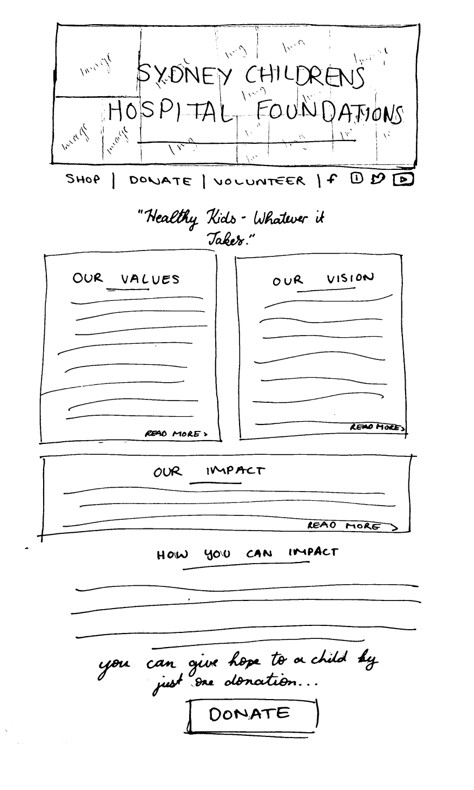 Image
Img
Img
Image
SYDNEY CHILDRENS
Img
HOSPITAL FOUNDATIONS
Image
Image
Img
Img
Img
SHOP | DONATE | VOLUNTEER | f
"Healthy Kids - Whatever it
Takes."
OUR VALUES
READ MORE >
OUR VISION
READ MORE >
OUR IMPACT
READ MORE >
HOW YOU CAN IMPACT
you can give hope to a child by
just one donation...
DONATE